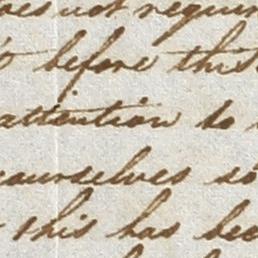 does not requir
to before this
attention to
ourselves so
this has bee